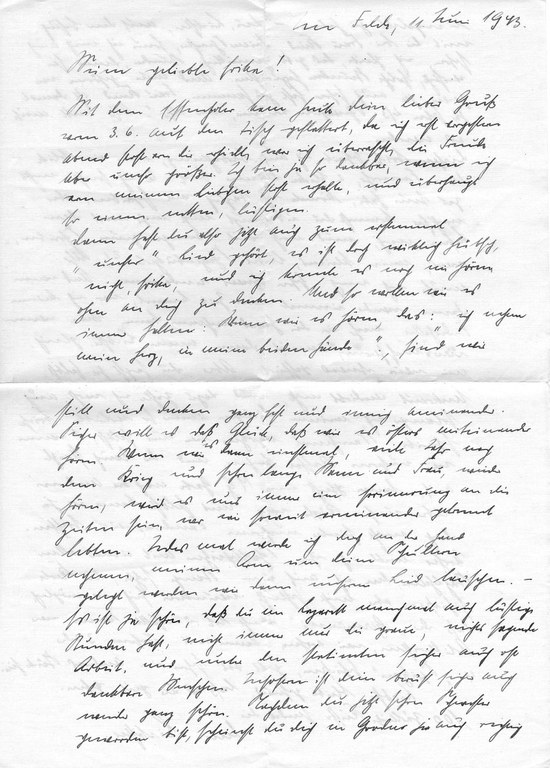 im Felde, 11. Juni 1943.
Meine geliebte Erika!
Mit dem Essenholer kam heute dein lieber Gruß
vom 3.6. auf den Tisch geflattert, da ich erst vorgestern
abend Post von dir erhielt, war ich überrascht, die Freude
aber umso größer. Ich bin ja so dankbar, wenn ich
von meinem Liebchen Post erhalte, und überhaupt
so einen netten, lustigen.
Dann hast du also jetzt auch zum erstenmal
"unser" Lied gehört, es ist doch wirklich hübsch,
nicht, Erika, und ich konnte es noch nie hören
ohne an dich zu denken. Und so wollen wir es
immer halten: Wenn wir es hören, das: "ich nehm
mein Herz, in meine beiden Hände", sind wir
still und denken ganz fest und innig aneinander.
Sicher will es das Glück, daß wir es öfters miteinander
hören. Wenn wir es dann einstmal, viele Jahre nach
dem Krieg und schon lange Mann und Frau, wieder
hören, wird es uns immer eine Erinnerung an die
Zeiten sein, wo wir soweit voneinander getrennt
lebten. Jedes mal werde ich dich an der Hand
nehmen, meinen Arm um deine Schultern
gelegt werden wir dann unserm Lied lauschen. –
Es ist ja schön, daß du im Lazarett manchmal auch lustige
Stunden hast, nicht immer nur die graue, nichts sagende
Arbeit, und unter den Patienten sicher auch oft
dankbare Menschen. Insofern ist dein Beruf sicher auch
wieder ganz schön. Nachdem du jetzt schon Schwester
geworden bist, scheinst du dich in ja auch richtig